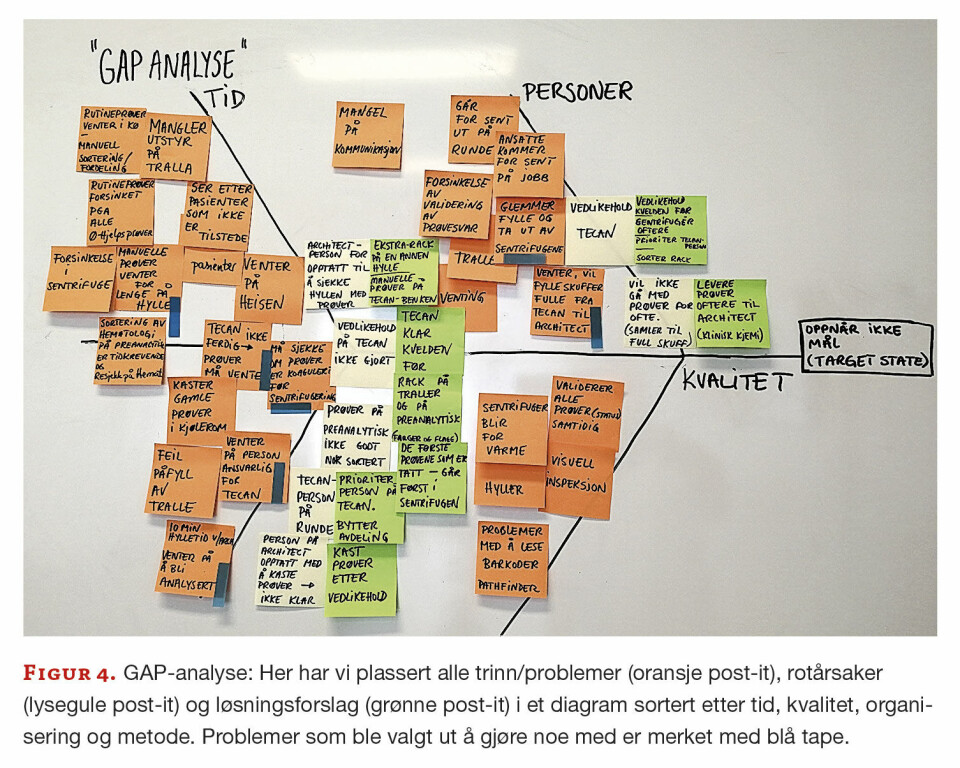 "GAP ANALYSE"
TID
PERSONER
RUTINEPRØVER
VENTER I KØ
—
MANUELL
SORTERING/
FORDELING
MANGLER
UTSTYR
PÅ
TRALLA
RUTINEPRØVER
FORSINKET
PGA
ALLE
Ø-Hjelpsprøver
SER ETTER
PASIENTER
SOM IKKE
ER
TILSTEDE
FORSINKELSE
I
SENTRIFUGE
MANUELLE
PRØVER
VENTER
FOR
LENGE PÅ
HYLLE
pasienter
VENTER
PÅ
HEISEN
SORTERING AV
HEMATOLOGI
PÅ PREANALYTISK
ER TIDKREVENDE
OG
Resjekk på Hemat
TECAN IKKE
FERDIG →
PRØVER
MÅ VENTE
MÅ SJEKKE
OM PRØVER
ER KOAGULERT
FØR
SENTRIFUGERING
KASTER
GAMLE
PRØVER
I KJØLEROM
FEIL
PÅFYLL
AV
TRALLE
VENTER
PÅ PERSON
ANSVARLIG
FOR
TECAN
10 MIN
HYLLETID
VENTER PÅ
Å BLI
ANALYSERT
MANGEL
PÅ
KOMMUNIKASJON
GÅR
FOR SENT
UT PÅ
RUNDE
ANSATTE
KOMMER
FOR SENT
PÅ JOBB
FORSINKELSE
AV
VALIDERING
AV
PRØVESVAR
GLEMMER
FYLLE OG
TA UT AV
SENTRIFUGENE
VEDLIKEHOLD
TECAN
VEDLIKEHOLD
KVELDEN FØR
SENTRIFUGER
OFTERE
PRIORITER TECAN-
PERSON
SORTER RACK
TRALLE
VENTING
ARCHITECT-
PERSON FOR
OPPTATT TIL
Å SJEKKE
HYLLEN MED
PRØVER
EKSTRA-RACK
PÅ EN ANNEN
HYLLE
MANUELLE-
PRØVER PÅ
TECAN-BENKEN
VENTER, VIL
FYLLE SKUFFER
FULLE FRA
TECAN TIL
ARCHITECT
VIL IKKE
GÅ MED
PRØVER FOR
OFTE.
(SAMLER TIL
FULL SKUFF)
LEVERE
PRØVER
OFTERE TIL
ARCHITECT
(KLINISK KJEMI)
OPPNÅR IKKE
MÅL
(TARGET STATE)
KVALITET
VEDLIKEHOLD
PÅ TECAN
IKKE GJORT
TECAN
KLAR
KVELDEN
FØR
RACK PÅ
TRALLER
OG PÅ
PREANALYTISK
(FARGER OG FLAGG)
PRØVER PÅ
PREANALYTISK
IKKE GODT
NOK SORTERT
DE FØRSTE
PRØVENE SOM ER
TATT — GÅR
FØRST I
SENTRIFUGEN
TECAN-
PERSON
PÅ
RUNDE
PRIORITER
PERSON PÅ
TECAN.
BYTTER
AVDELING
PERSON PÅ
ARCHITECT
OPPTATT MED
Å KASTE
PRØVER →
IKKE KLAR
KAST
PRØVER
ETTER
VEDLIKEHOLD
SENTRIFUGER
BLIR
FOR
VARME
HYLLER
VALIDERER
ALLE
PRØVER (STATUS)
SAMTIDIG
VISUELL
INSPEKSJON
PROBLEMER
MED Å LESE
BARKODER
PATHFINDER
FIGUR 4. GAP-analyse: Her har vi plassert alle trinn/problemer (oransje post-it), rotårsaker
(lysegule post-it) og løsningsforslag (grønne post-it) i et diagram sortert etter tid, kvalitet, organi-
sering og metode. Problemer som ble valgt ut å gjøre noe med er merket med blå tape.